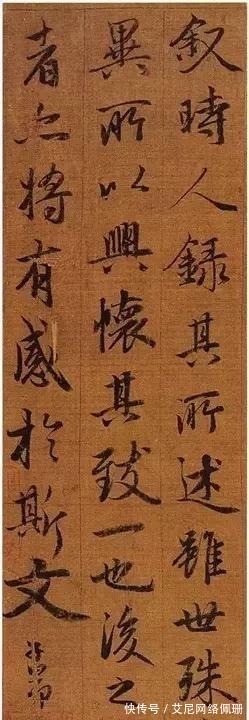 叙時人録其所述雖世殊
異所以興懷其致一也後之
者亦將有感於斯文
快传号/艾尼网络佩珊